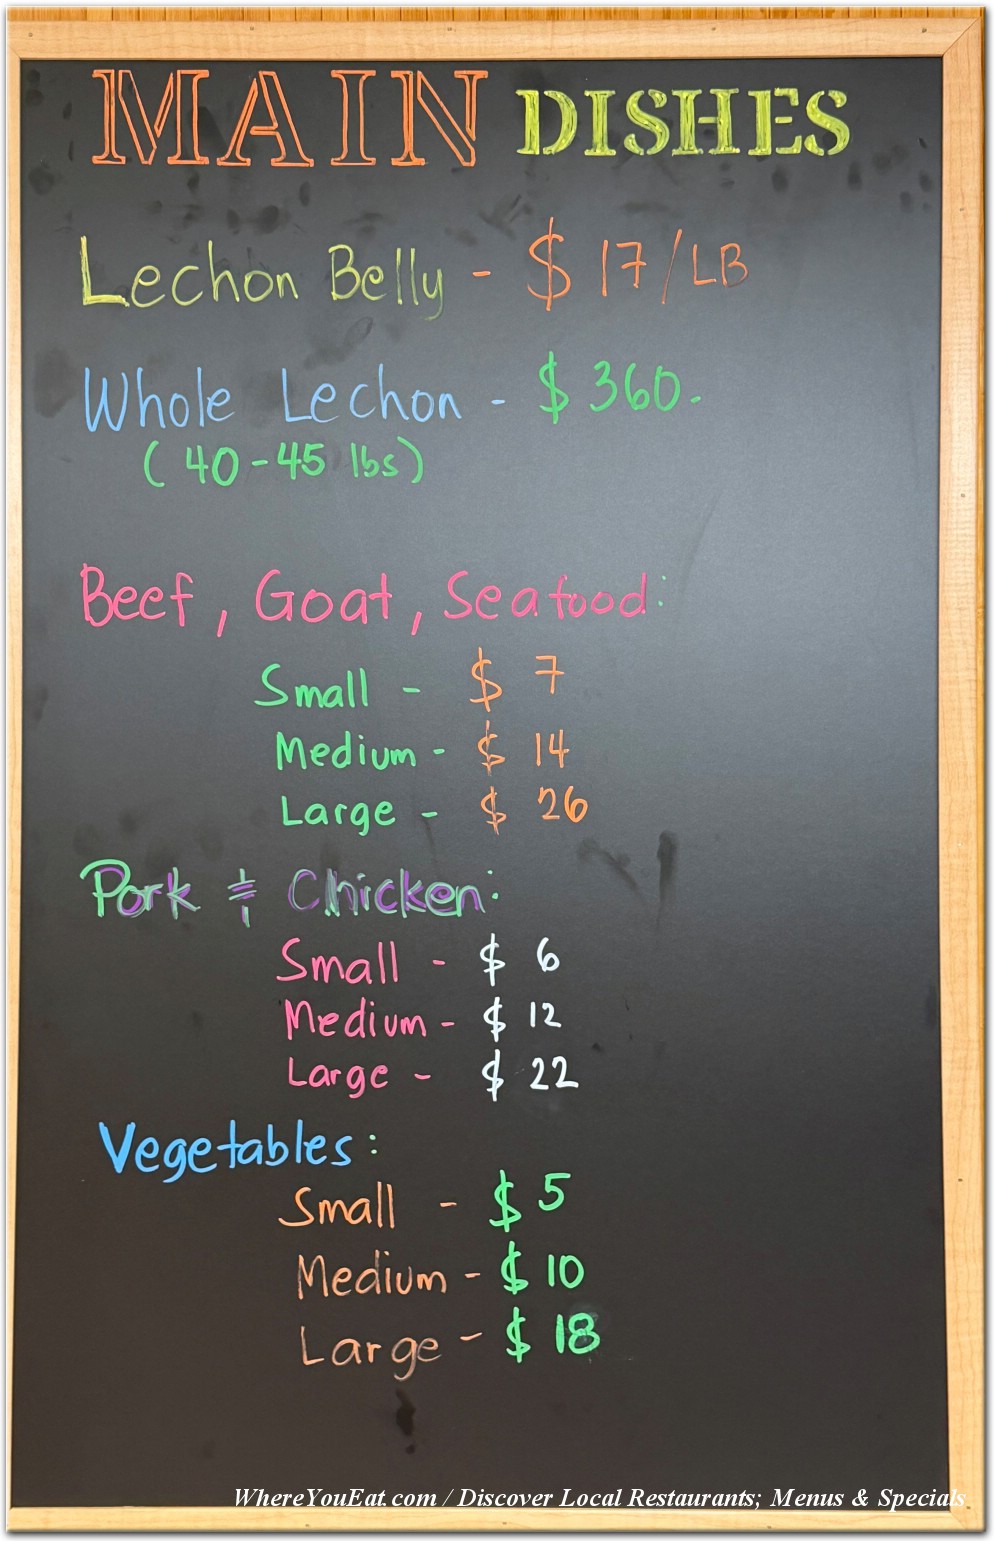 MAIN DISHES
Lechon Belly - $17/LB
Whole Lechon - $360.
(40-45 lbs)
Beef, Goat, Seafood:
Small - $7
Medium - $14
Large - $26
Pork & Chicken:
Small - $6
Medium - $12
Large - $22
Vegetables:
Small - $5
Medium - $10
Large - $18
WhereYouEat.com / Discover Local Restaurants; Menus & Specials